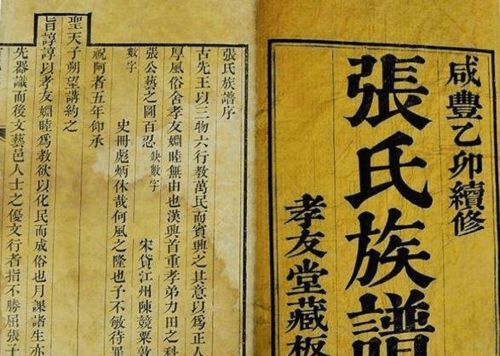 咸豐乙卯續修
張氏族譜
孝友堂藏板
張氏族譜序
古先王以三物六行教萬民而賓興之其意以為正人
厚風俗舍孝友婣睦無由也漢興首重孝弟力田之科
張公藝之圖百忍 缺數字 宋貸江州陳競粟敦
數字 史冊彪炳休哉何風之隆也予不敏待罪
祝阿者五年仰承
聖天子朔望講約之
旨諄諄以孝友婣睦為教欲以化民而成俗也月課諸生亦
先器識而後文藝邑人士之優文行者指不勝屈張子